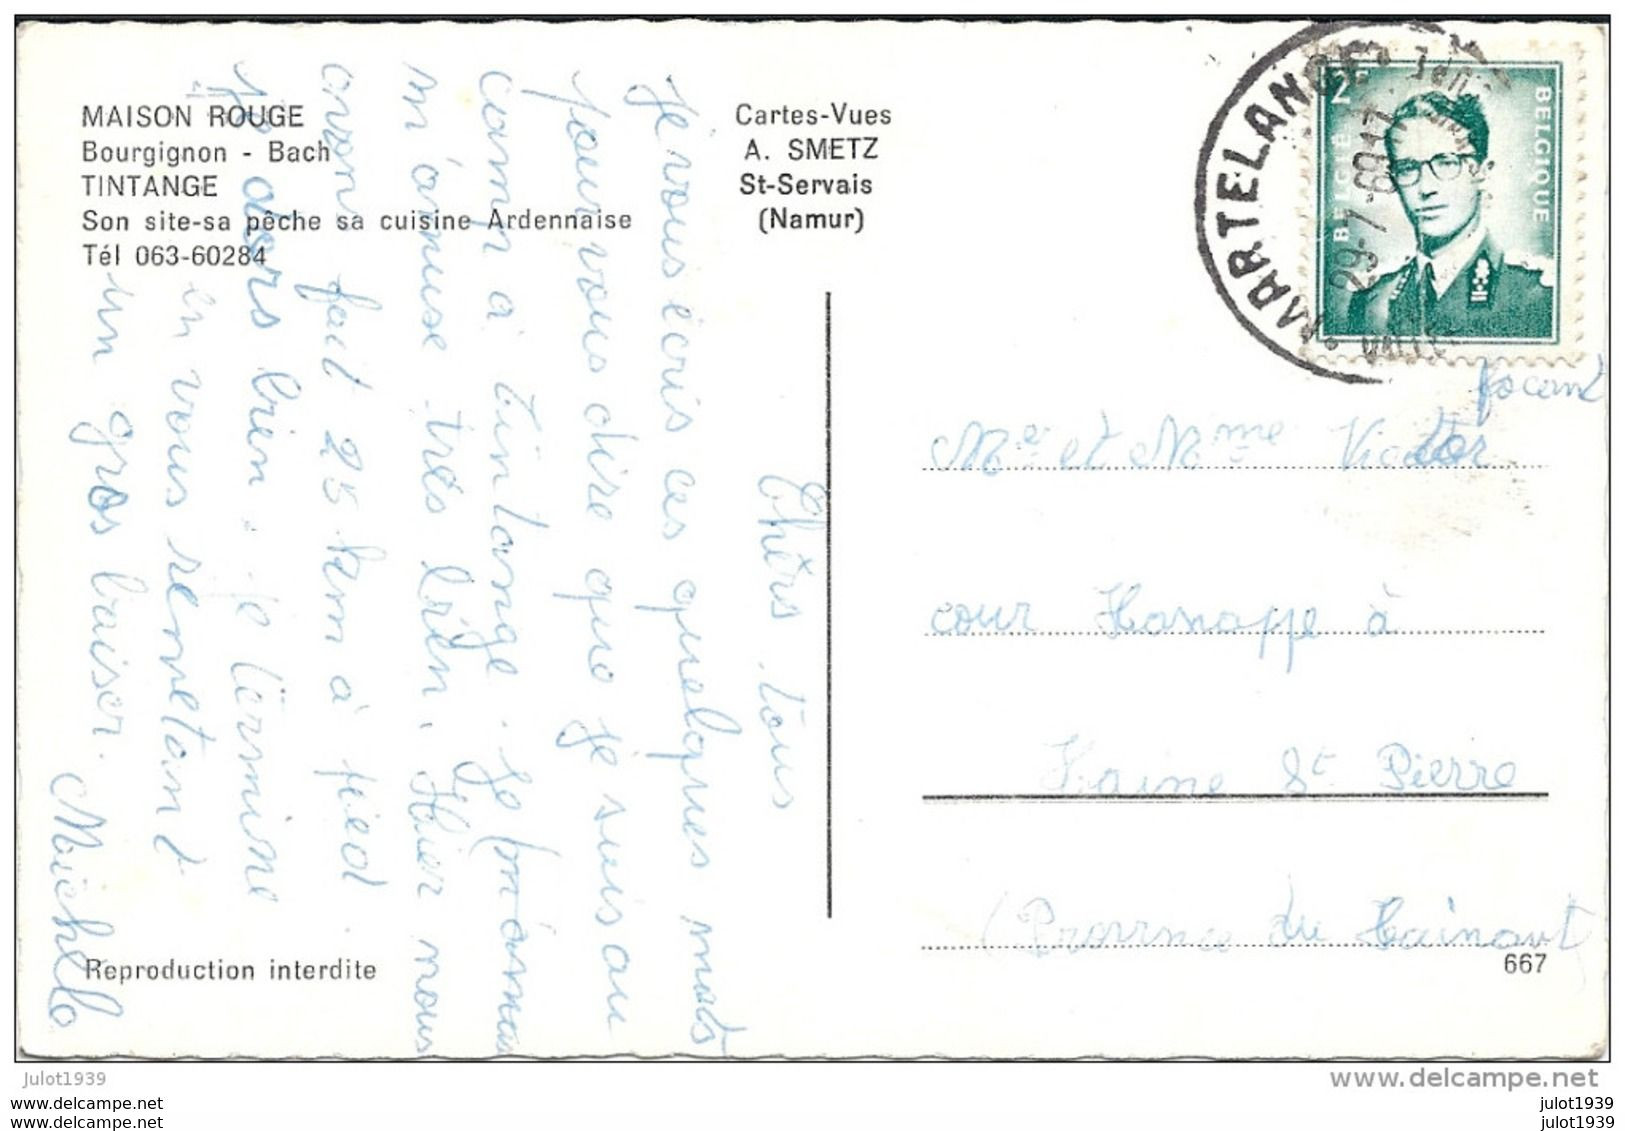 MAISON ROUGE
Bourgignon - Bach
TINTANGE
Son site-sa pêche sa cuisine Ardennaise
Tél 063-60284
Cartes-Vues
A. SMETZ
St-Servais
(Namur)
MARTELANGE
29-7-69-17
2F
BELGIE
BELGIQUE
Chèrs tous
Je vous écris ces quelques mots
pour vous dire que je suis au
camp à Tintange. Je m'amuse
m'amuse très bien. Hier nous
avons fait 25 km à pied.
Je dors bien. Je termine
en vous remetant
un gros baiser.
Michel
Mr et Mme Victor
cour Hanappe à
Haine St Pierre
(Province du Hainaut)
Reproduction interdite
667
julot1939
www.delcampe.net
www.delcampe.com
julot1939
www.delcampe.com
julot1939